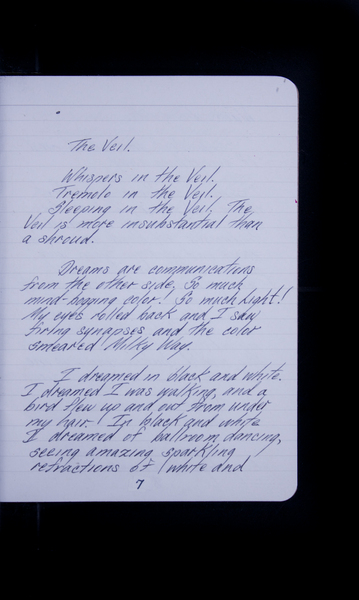 The Veil.
Whispers in the Veil.
Tremelo in the Veil.
Sleeping in the Veil, The
Veil is more insubstantial than
a shroud.
Dreams are communications
from the other side. So much
mind-boggling color! So much Light!
My eyes rolled back and I saw
firing synapses and the color
smeared Milky Way.
I dreamed in black and white.
I dreamed I was walking, and a
bird flew up and out from under
my hair! In black and white
I dreamed of ballroom dancing,
seeing amazing sparkling
refractions of (white and
7